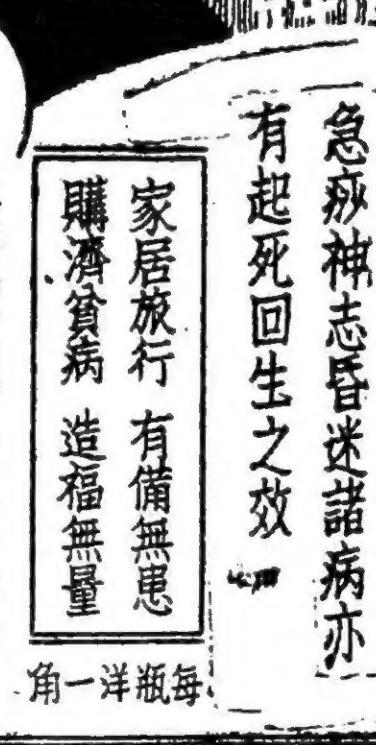 急痧神志昏迷諸病亦
有起死回生之效
家居旅行 有備無患
購濟貧病 造福無量
每瓶洋一角